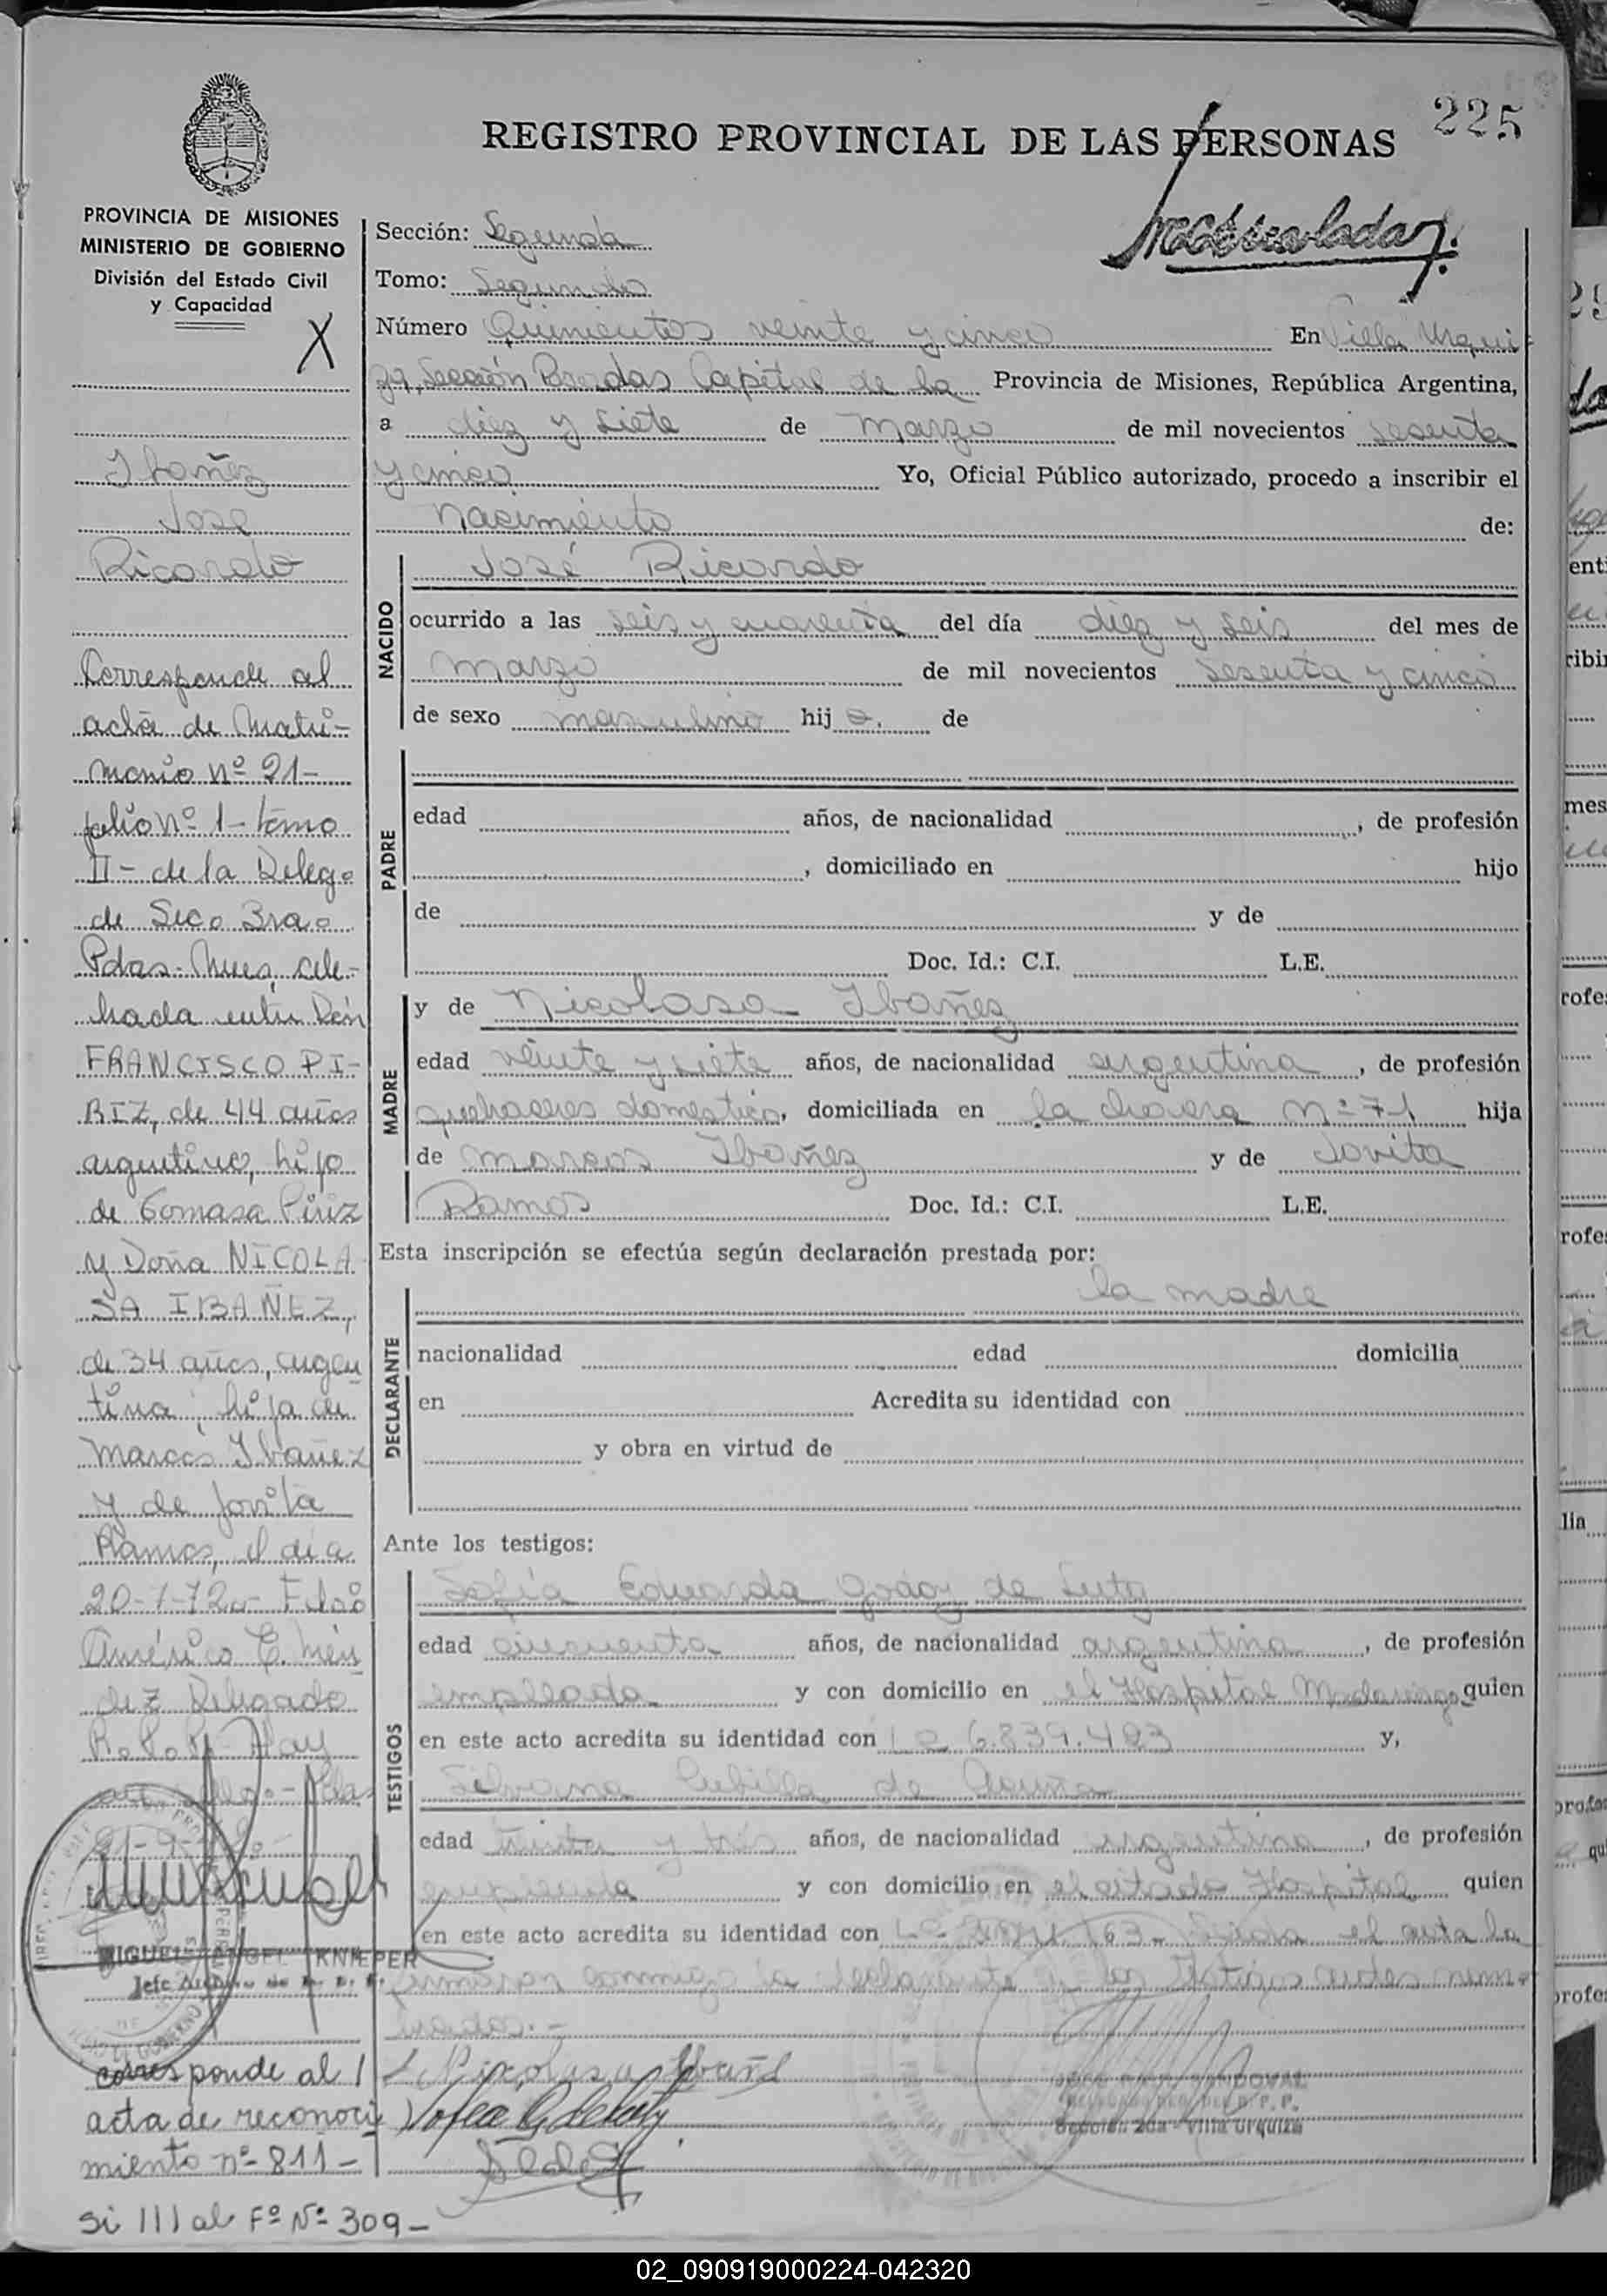 225
REGISTRO PROVINCIAL DE LAS PERSONAS
PROVINCIA DE MISIONES
MINISTERIO DE GOBIERNO
División del Estado Civil
y Capacidad
X
Ibañez
José
Ricardo
Corresponde al
acta de Matri-
monio nº 21-
folio nº 1- tomo
II- de la Deleg.
de Sec. 3ra.
Pdas. Mnes, cele-
brada entre Don
FRANCISCO PI-
RIZ, de 44 años
argentino, hijo
de Tomasa Píriz
y Doña NICOLA
SA IBAÑEZ,
de 34 años, argen
tina, hija de
Marcos Ibañez
y de Jovita
Ramos, el día
20-1-72.- Fdo:
Américo E. Mén
dez Delegado
R.P.P. Hay
MIGUEL ANGEL KNIEPER
Jefe
corresponde al
acta de reconoci
miento nº 811-
Si III al Fº Nº 309-
Sección: Segunda
Tomo: Segundo
Número Quinientos veinte y cinco En Villa Urqui
za, Sección Posadas Capital de la Provincia de Misiones, República Argentina,
a diez y siete de Marzo de mil novecientos sesenta
y cinco Yo, Oficial Público autorizado, procedo a inscribir el
Nacimiento de:
NACIDO
José Ricardo
ocurrido a las seis y cuarenta del día diez y seis del mes de
Marzo de mil novecientos sesenta y cinco
de sexo masculino hij o. de
PADRE
edad años, de nacionalidad , de profesión
, domiciliado en hijo
de y de
Doc. Id.: C.I. L.E.
MADRE
y de Nicolasa Ibañez
edad veinte y siete años, de nacionalidad argentina , de profesión
quehaceres domestico, domiciliada en la chacra nº 71 hija
de Marcos Ibañez y de Jovita
Ramos Doc. Id.: C.I. L.E.
Esta inscripción se efectúa según declaración prestada por:
la madre
DECLARANTE
nacionalidad edad domicilia
en Acredita su identidad con
y obra en virtud de
Ante los testigos:
TESTIGOS
Sofía Eduarda Godoy de
edad cincuenta años, de nacionalidad argentina , de profesión
empleada y con domicilio en el Hospital Madariaga quien
en este acto acredita su identidad con L C 6.839.423 y,
Silvana Cubilla de Acuña
edad treinta y tres años, de nacionalidad argentina , de profesión
empleada y con domicilio en el citado Hospital quien
en este acto acredita su identidad con el acta la
firmaron conmigo la declarante y los testigos antes nom-
brados.-
Nicolasa Ibañe
Sección 2da - Villa Urquiza
02_090919000224-042320